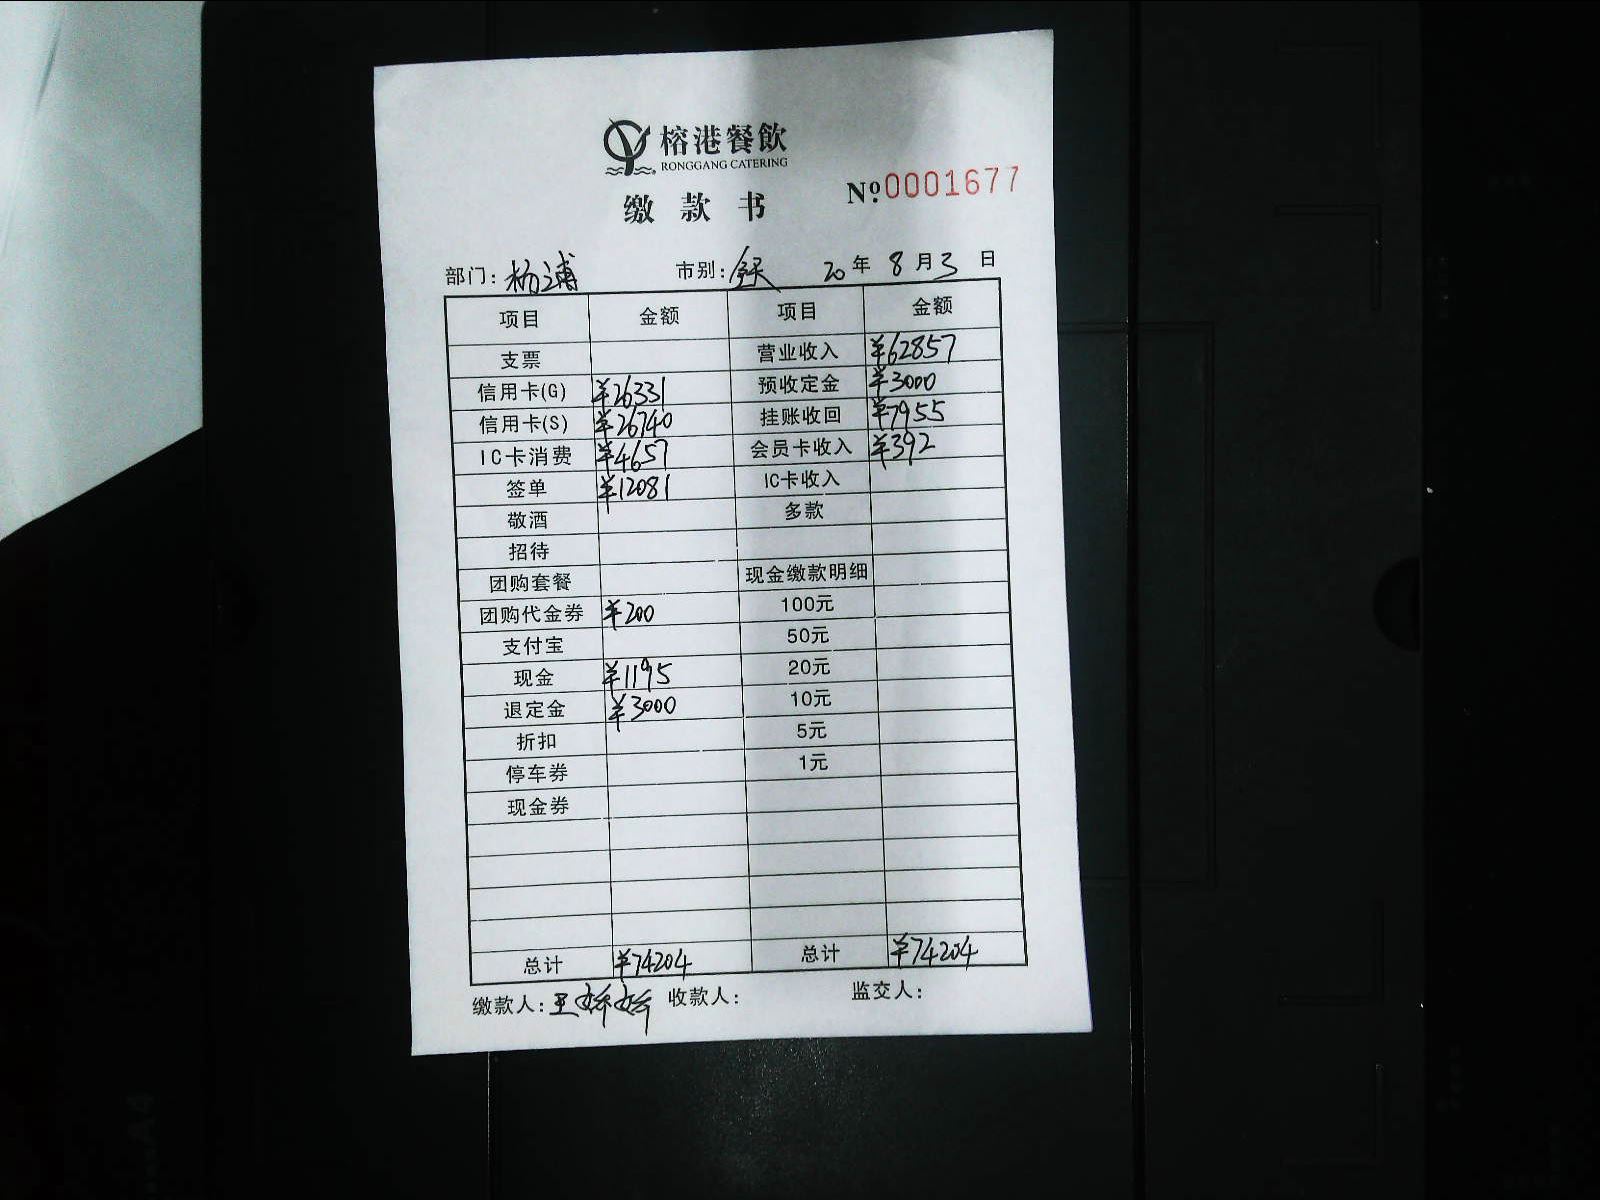 榕港餐飲
RONGGANG CATERING
缴款书 №0001677
部门:杨浦 市别:全天 20年8月3日
项目 金额 项目 金额
支票 营业收入 ¥62857
信用卡(G) ¥26331 预收定金 ¥3000
信用卡(S) ¥26740 挂账收回 ¥7955
IC卡消费 ¥4657 会员卡收入 ¥392
签单 ¥12081 IC卡收入
敬酒 多款
招待
团购套餐 现金缴款明细
团购代金券 ¥200 100元
支付宝 50元
现金 ¥1195 20元
退定金 ¥3000 10元
折扣 5元
停车券 1元
现金券
总计 ¥74204 总计 ¥74204
缴款人:王娇娇 收款人: 监交人: